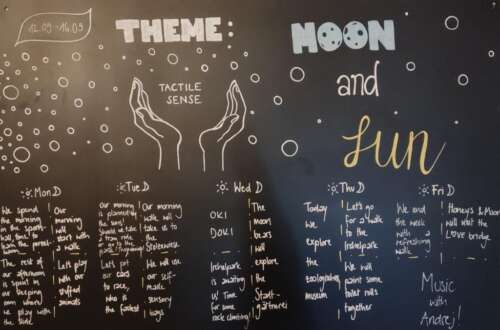 12.09-16.09
THEME:
MOON
and
Sun
TACTILE
SENSE
Mon D
We spend
the morning
in the sports
hall
The rest of
our afternoon
is spent in
sleeping
room where
we play with
Our
morning
will
start with
a walk
Let's play
with our
stuffed
animals
Tue D
Our morning
is planned
the
Let's put
our cars
to race,
who is
the fastest
Our morning
walk will
take us to
the
We will
use our
self-
made
sensory
boxes
Wed D
OKI
DOKI
is awaiting
us! Time
for some
rock climbing!
The
moon
bears
will
explore
the
Stadt-
gärtnerei
Thu D
Today
we
explore
the
zoological
museum
Let's go
for a walk
to the
Irchelpark
We will
paint some
toilet rolls
together
Fri D
We end
the week
with a
refreshing
walk
Honeys & Moon
will visit the
Love bridge
Music
with
Andrej!